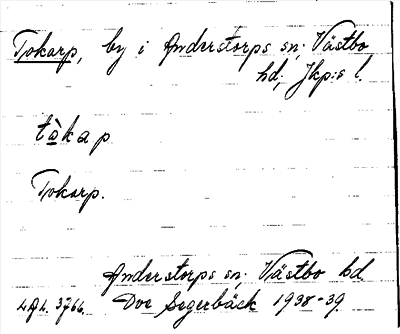 Tokarp, by i Anderstorps sn; Västbo
hd; Jkp:s l.
tòkap
Tokarp.
Anderstorps sn; Västbo hd
Ove Segerbäck 1938-39.